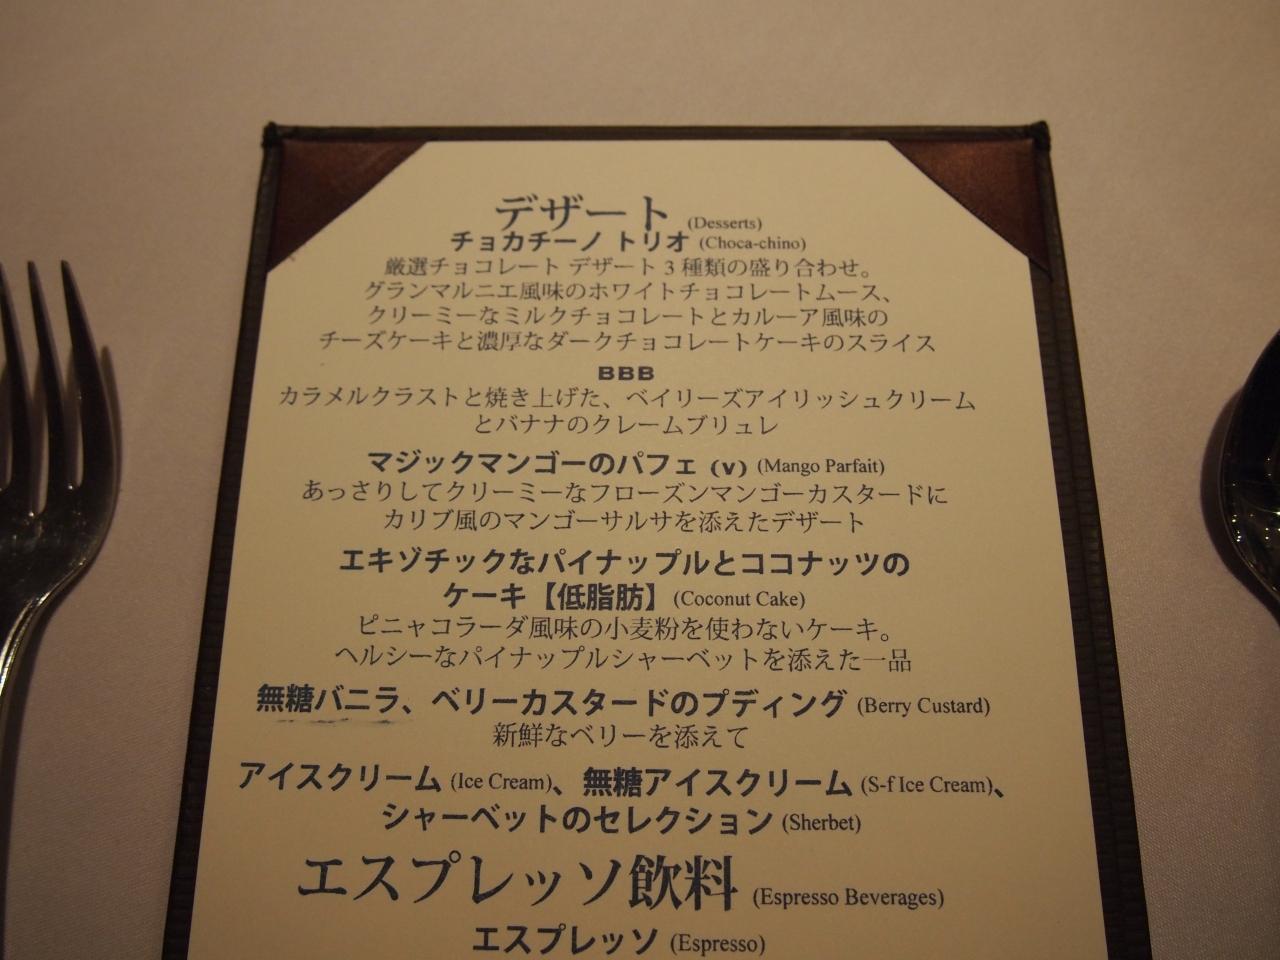 デザート (Desserts)
チョカチーノ トリオ (Choca-chino)
厳選チョコレート デザート 3 種類の盛り合わせ。
グランマルニエ風味のホワイトチョコレートムース、
クリーミーなミルクチョコレートとカルーア風味の
チーズケーキと濃厚なダークチョコレートケーキのスライス
BBB
カラメルクラストと焼き上げた、ベイリーズアイリッシュクリーム
とバナナのクレームブリュレ
マジックマンゴーのパフェ (v) (Mango Parfait)
あっさりしてクリーミーなフローズンマンゴーカスタードに
カリブ風のマンゴーサルサを添えたデザート
エキゾチックなパイナップルとココナッツの
ケーキ【低脂肪】 (Coconut Cake)
ピニャコラーダ風味の小麦粉を使わないケーキ。
ヘルシーなパイナップルシャーベットを添えた一品
無糖バニラ、ベリーカスタードのプディング (Berry Custard)
新鮮なベリーを添えて
アイスクリーム (Ice Cream)、無糖アイスクリーム (S-f Ice Cream)、
シャーベットのセレクション (Sherbet)
エスプレッソ飲料 (Espresso Beverages)
エスプレッソ (Espresso)